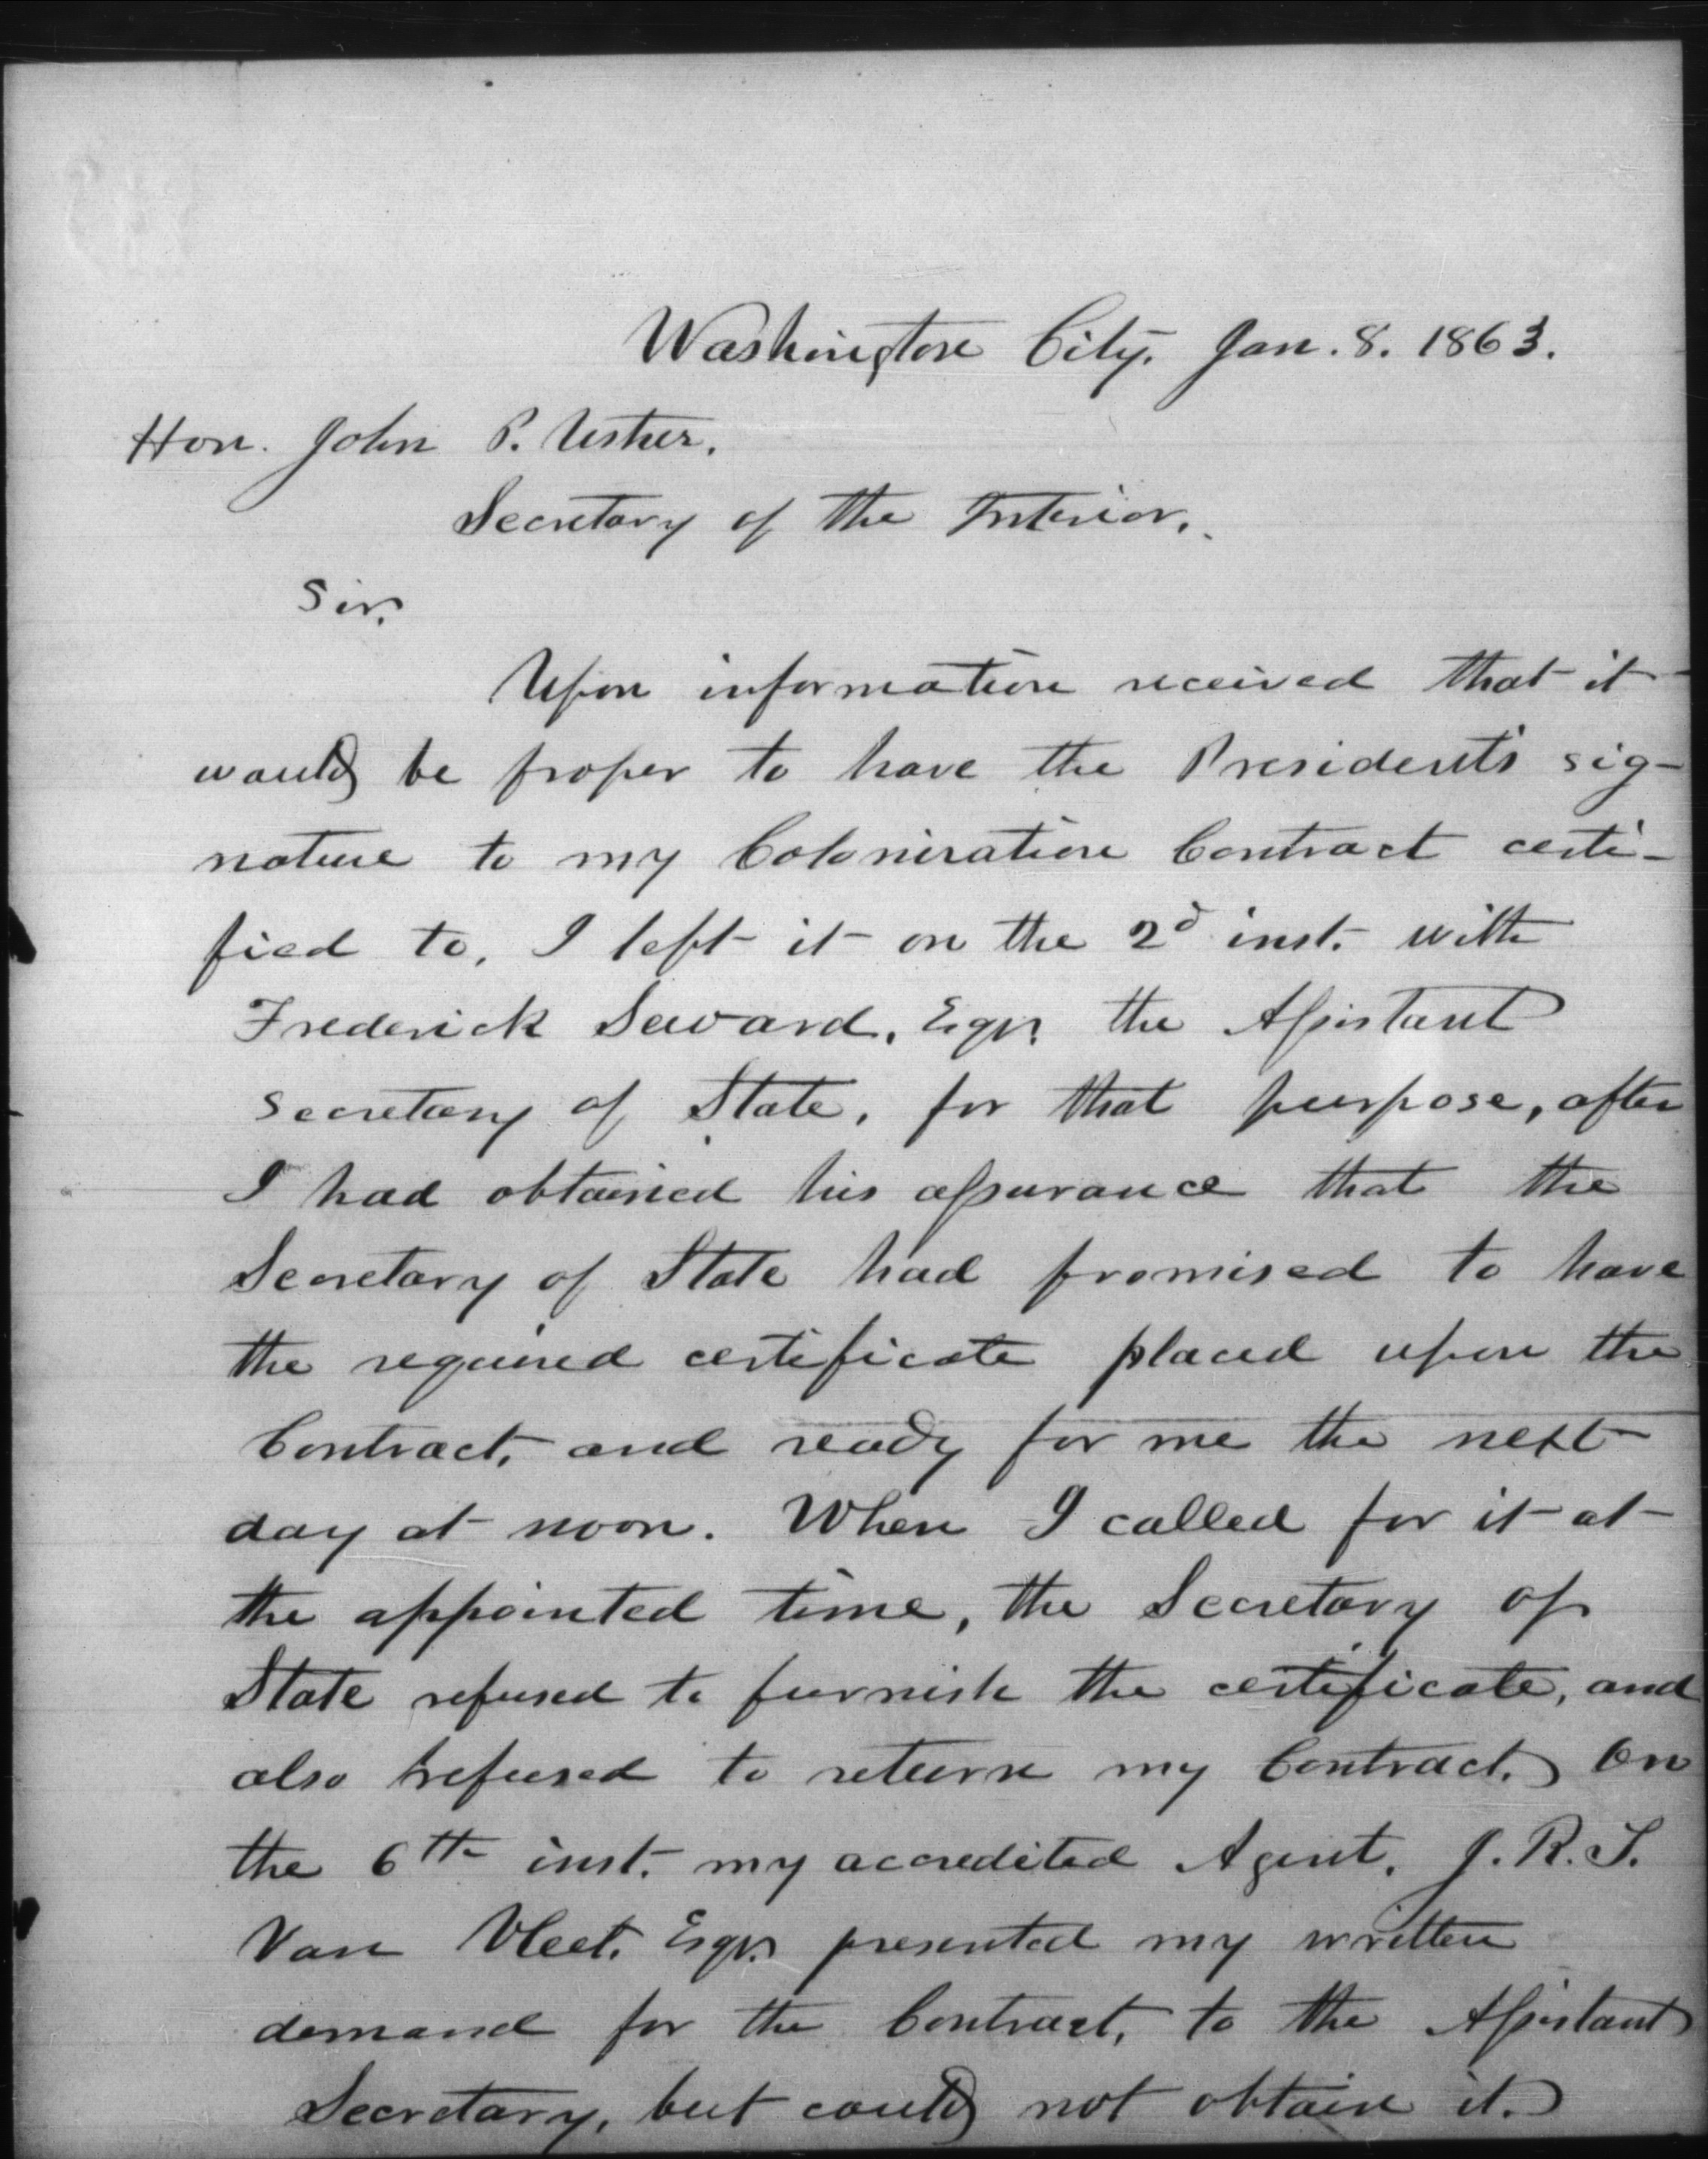 Washington City, Jan. 8. 1863.
Hon. John P. Usher,
Secretary of the Interior.
Sir,
Upon information received that it
would be proper to have the President's sig-
nature to my Colonization Contract certi-
fied to, I left it on the 2d inst. with
Frederick Seward, Esqr. the Assistant
Secretary of State, for that purpose, after
I had obtained his assurance that the
Secretary of State had promised to have
the required certificate placed upon the
Contract, and ready for me the next
day at noon. When I called for it at
the appointed time, the Secretary of
State refused to furnish the certificate, and
also refused to return my Contract. On
the 6th inst. my accredited Agent, J. R. S.
Van Vleet, Esqr. presented my written
demand for the Contract, to the Assistant
Secretary, but could not obtain it.